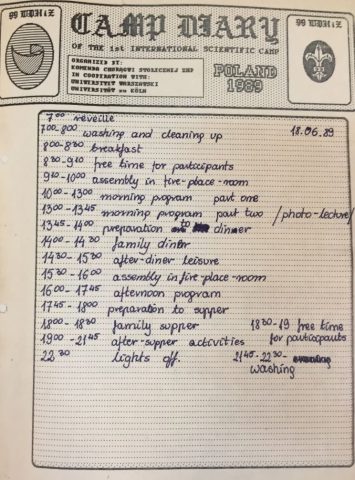 CAMP DIARY
OF THE 1st INTERNATIONAL SCIENTIFIC CAMP
ORGANIZED BY:
KOMENDA CHORĄGWI STOŁECZNEJ ZHP
IN COOPERATION WITH:
UNIWERSYTET WARSZAWSKI
UNIVERSITÄT zu KÖLN
POLAND
1989
7 00 reveille
18.06.89
7 00 - 8 00 washing and cleaning up
8 00 - 8 30 breakfast
8 30 - 9 10 free time for participants
9 10 - 10 00 assembly in fire-place-room
10 00 - 13 00 morning program part one
13 00 - 13 45 morning program part two /photo-lecture/
13 45 - 14 00 preparation to dinner
14 00 - 14 30 family diner
14 30 - 15 30 after-diner leisure
15 30 - 16 00 assembly in fire-place-room
16 00 - 17 45 afternoon program
17 45 - 18 00 preparation to supper
18 00 - 18 30 family supper 18 30 - 19 free time
19 00 - 21 45 after-supper activities for participants
22 30 lights off. 21 45 - 22 30 -
washing